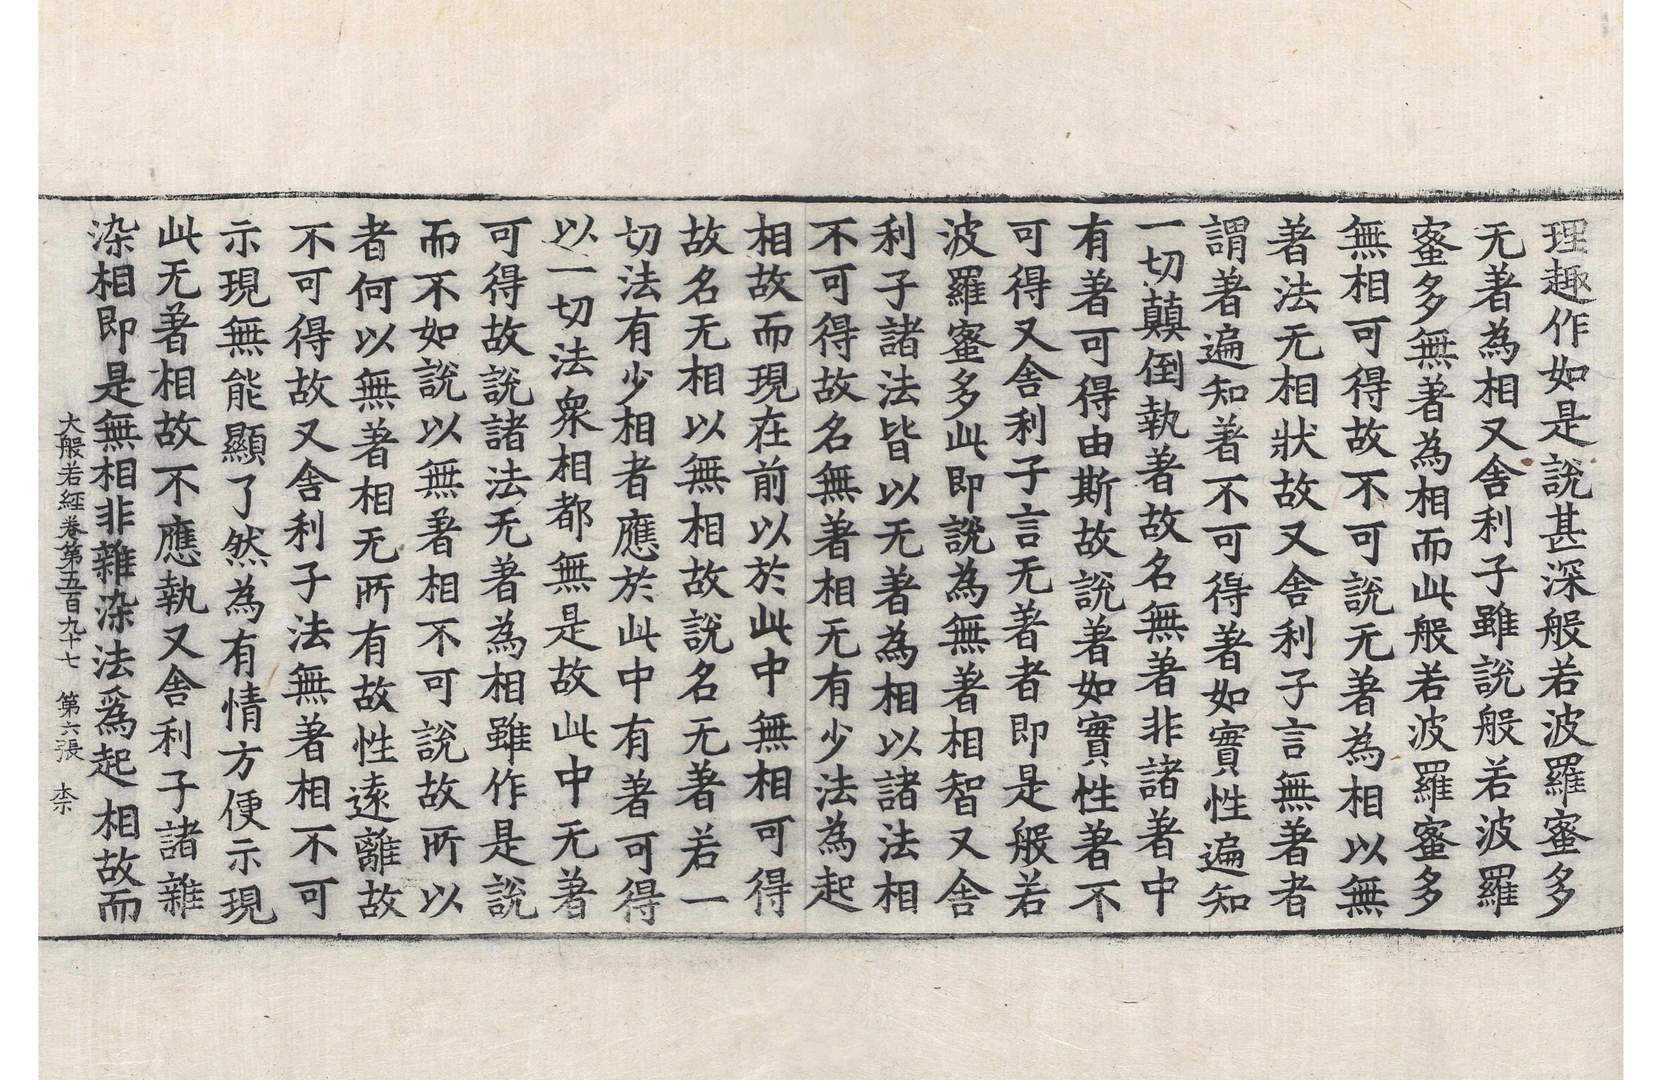 理趣作如是說甚深般若波羅蜜多
无著為相又舍利子雖說般若波羅
蜜多無著為相而此般若波羅蜜多
無相可得故不可說无著為相以無
著法无相狀故又舍利子言無著者
謂著遍知著不可得著如實性遍知
一切顛倒執著故名無著非諸著中
有著可得由斯故說著如實性著不
可得又舍利子言无著者即是般若
波羅蜜多此即說為無著相智又舍
利子諸法皆以无著為相以諸法相
不可得故名無著相无有少法為起
相故而現在前以於此中無相可得
故名无相以無相故說名无著若一
切法有少相者應於此中有著可得
以一切法衆相都無是故此中无著
可得故說諸法无著為相雖作是說
而不如說以無著相不可說故所以
者何以無著相无所有故性遠離故
不可得故又舍利子法無著相不可
示現無能顯了然為有情方便示現
此无著相故不應執又舍利子諸雜
染相即是無相非雜染法爲起相故而
大般若經卷第五百九十七 第六張 柰